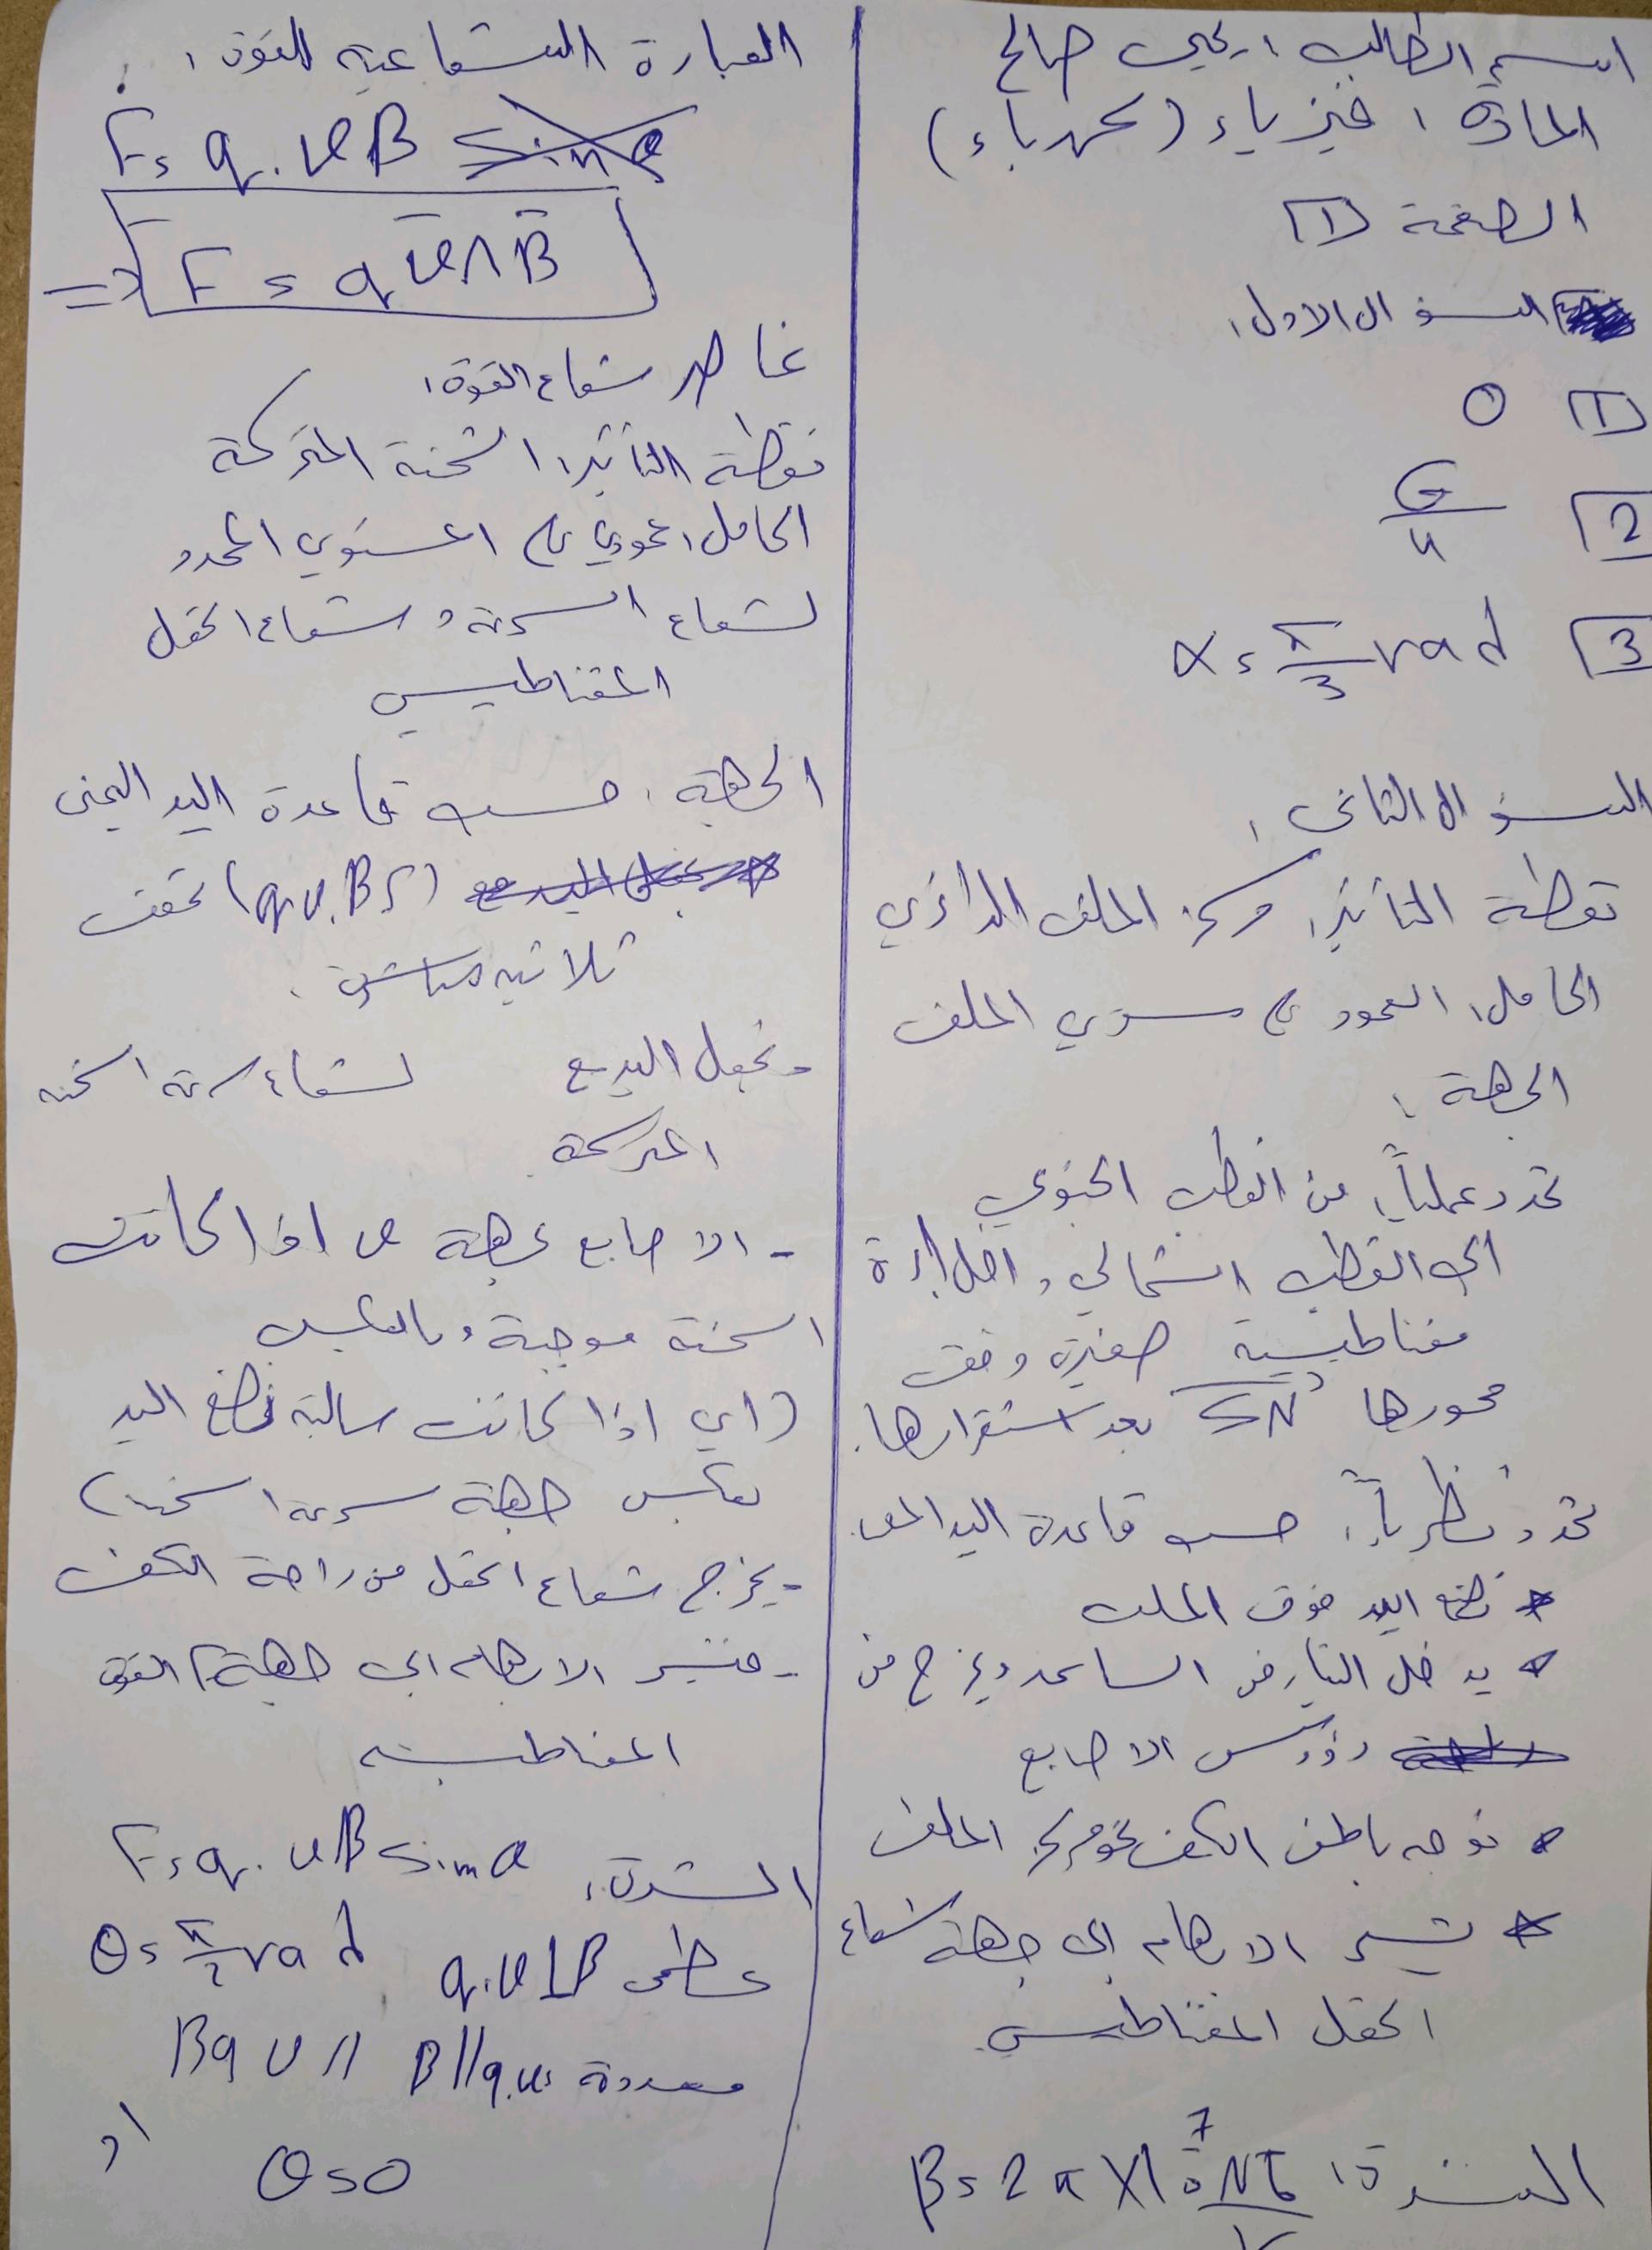 اسم الطالب: يحيى صالح
المادة: فيزياء (كهرباء)
الصفحة 1
السؤال الاول:
1 0
2 G/4
3 α = π/3 rad
السؤال الثاني:
نقطة التأثير: مركز الملف الدائري
الحامل: العمود على مستوي الملف
الجهة:
تحدد عملياً: من القطب الجنوبي
الى القطب الشمالي داخل إبرة
مغناطيسية صغيرة وفق
محورها SN بعد استقرارها.
تحدد نظرياً: حسب قاعدة اليد اليمنى
* نضع اليد فوق الملف
* يدخل التيار من الساعد ويخرج من
رؤوس الاصابع
* نوجه باطن الكف نحو مركز الملف
* يشير الابهام الى جهة شعاع
الحقل المغناطيسي.
الشدة: B = 2π×10⁻⁷ NI/r
العبارة الشعاعية للقوة:
F = q.vB sin θ
=> F = q v∧B
عناصر شعاع القوة:
نقطة التأثير: الشحنة المتحركة
الحامل: عمودي على المستوي المحدد
لشعاع السرعة وشعاع الحقل
المغناطيسي
الجهة: حسب قاعدة اليد اليمنى
(qv.B,F) تحقق
ثلاثية مباشرة.
- نجعل اليد لشعاع سرعة الشحنة
المتحركة
- الاصابع بجهة v اذا كانت
الشحنة موجبة وبالعكس
(اي اذا كانت سالبة نضع اليد
بعكس جهة سرعة الشحنة)
- يخرج شعاع الحقل من راحة الكف
- فيشير الابهام الى جهة القوة
المغناطيسية
الشدة: F = q.vB sin θ
عظمى q.v⊥B θ = π/2 rad
معدومة B//q.v Bqv //
او
θ = 0